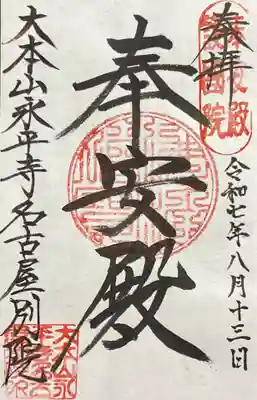 奉拝
令和七年八月十三日
奉安殿
大本山永平寺名古屋別院